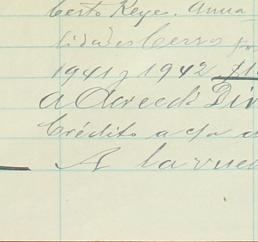 berto Reye. Anua
lidades Cerro
1941 y 1942
a Acreed. Div
Crédito a c/a
A la vue